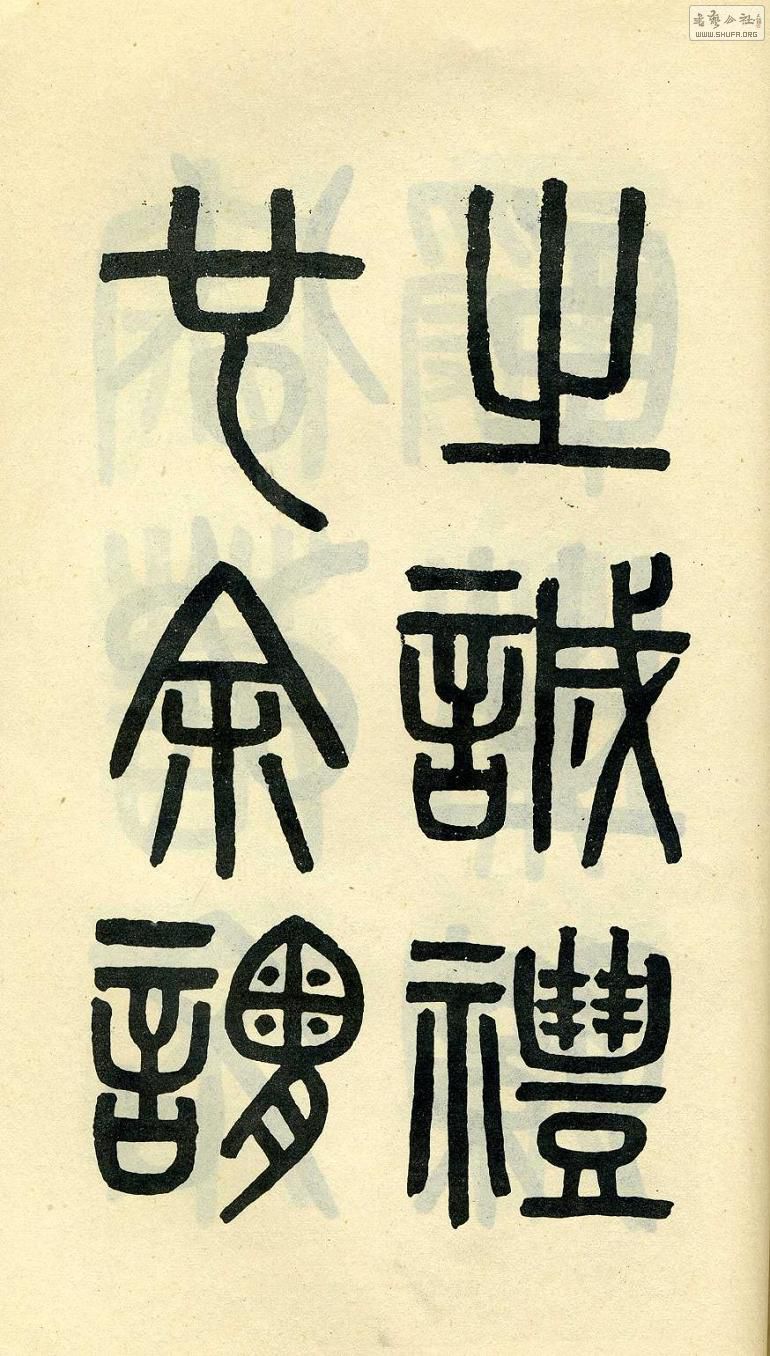 之誠禮
也余謂
書藝公社
WWW.SHUFA.ORG